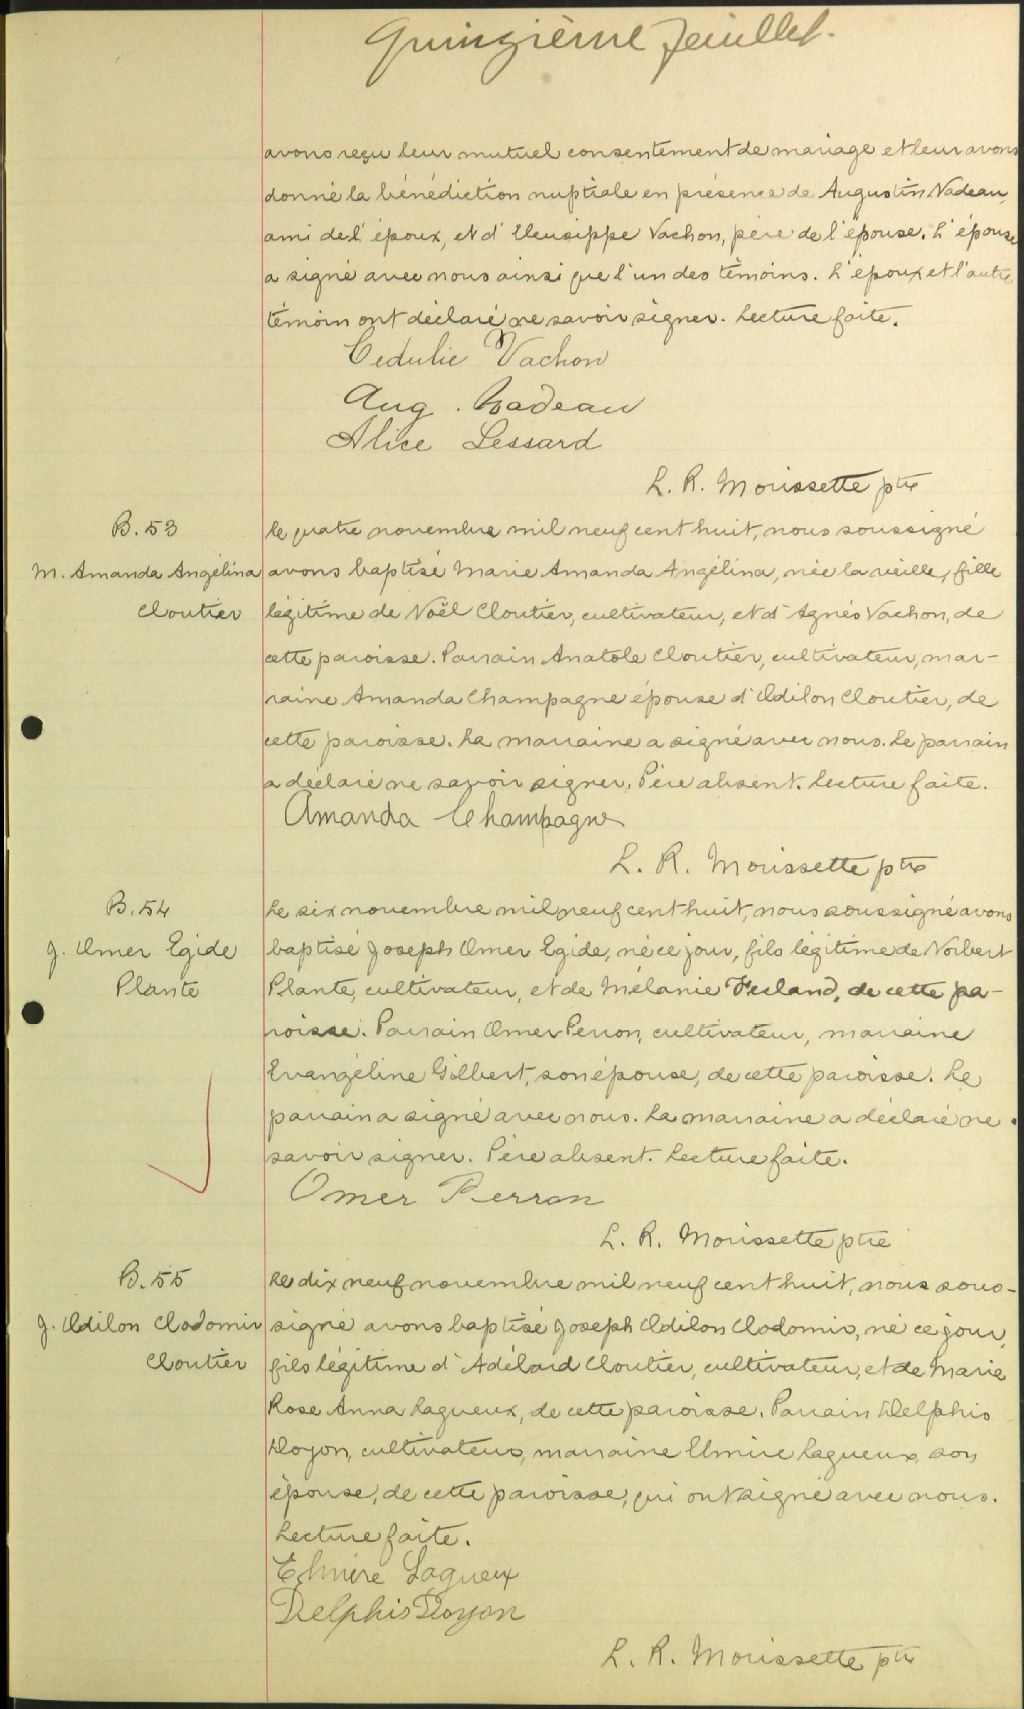 Quinzième feuillet.
avons reçu leur mutuel consentement de mariage et leur avons
donné la bénédiction nuptiale en présence de Augustin Nadeau,
ami de l'époux, et d'Eleusippe Vachon, père de l'épouse. L'épouse
a signé avec nous ainsi que l'un des témoins. L'époux et l'autre
témoin ont déclaré ne savoir signer. Lecture faite.
Cedulie Vachon
Aug. Nadeau
Alice Lessard
L. R. Morissette ptre
B. 53
M. Amanda Angélina
Cloutier
Le quatre novembre mil neuf cent huit, nous soussigné
avons baptisé Marie Amanda Angélina, née la veille, fille
légitime de Noël Cloutier, cultivateur, et d'Agnés Vachon, de
cette paroisse. Parrain Anatole Cloutier, cultivateur, mar-
raine Amanda Champagne épouse d'Odilon Cloutier, de
cette paroisse. La marraine a signé avec nous. Le parrain
a déclaré ne savoir signer. Père absent. Lecture faite.
Amanda Champagne
L. R. Morissette ptre
B. 54
J. Omer Egide
Plante
Le six novembre mil neuf cent huit, nous soussigné avons
baptisé Joseph Omer Egide, né ce jour, fils légitime de Norbert
Plante, cultivateur, et de Mélanie Ferland, de cette pa-
roisse. Parrain Omer Perron, cultivateur, marraine
Evangéline Gilbert, son épouse, de cette paroisse. Le
parrain a signé avec nous. La marraine a déclaré ne
savoir signer. Père absent. Lecture faite.
Omer Perron
L. R. Morissette ptre
B. 55
J. Odilon Clodomir
Cloutier
Le dix neuf novembre mil neuf cent huit, nous sous-
signé avons baptisé Joseph Odilon Clodomir, né ce jour,
fils légitime d'Adélard Cloutier, cultivateur, et de Marie
Rose Anna Lagueux, de cette paroisse. Parrain Delphis
Doyon, cultivateur, marraine Elmire Lagueux, son
épouse, de cette paroisse, qui ont signé avec nous.
Lecture faite.
Elmire Lagueux
Delphis Doyon
L. R. Morissette ptre